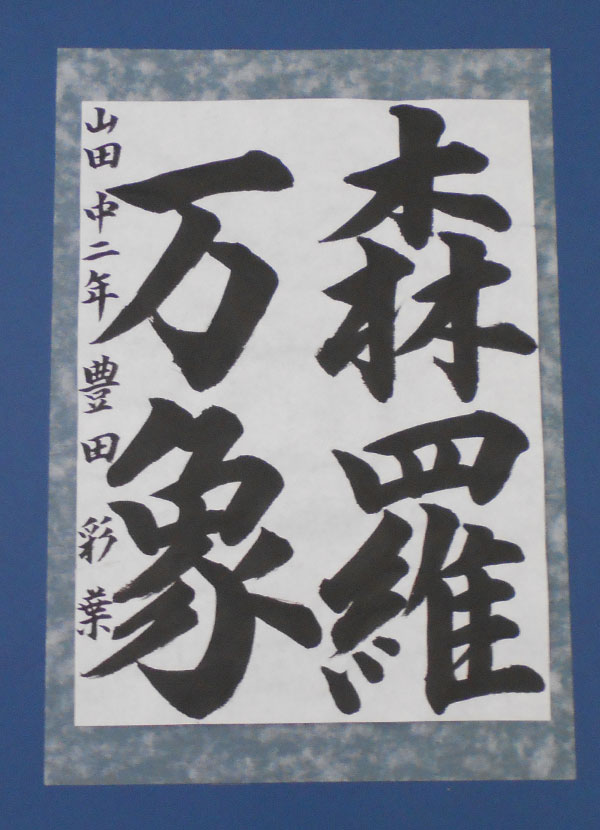 森羅
万象
山田中二年 豊田彩葉